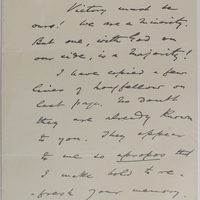 Victory must be
ours! We are a Minority.
But one, with God on
our side, is a Majority!
I have copied a few
lines of Longfellow on
last page. No doubt
they are already known
to you. They appear
to me so apropos that
I make bold to re-
fresh your memory.